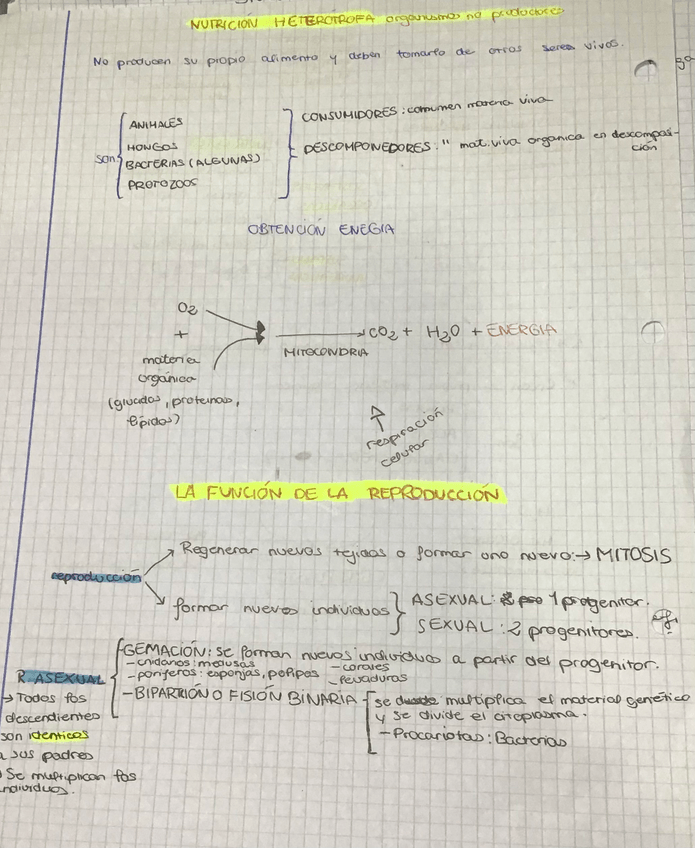 NUTRICIÓN HETERÓTROFA organismos no productores
No producen su propio alimento y deben tomarlo de otros seres vivos.
3º
son
ANIMALES
HONGOS
BACTERIAS (ALGUNAS)
PROTOZOOS
CONSUMIDORES: consumen materia viva
DESCOMPONEDORES: " mat. viva organica en descomposi-
ción
OBTENCIÓN ENEGIA
O2
+
materia
orgánica
(glucidos, proteinas,
lipidos)
MITOCONDRIA
CO2 + H2O + ENERGIA
respiración
celular
LA FUNCIÓN DE LA REPRODUCCIÓN
reproducción
Regenerar nuevos tejidos o formar uno nuevo: → MITOSIS
formar nuevos individuos
ASEXUAL: 1 progenitor.
SEXUAL: 2 progenitores.
R. ASEXUAL
→ Todos los
descendientes
son identicos
a sus padres
Se multiplican los
individuos.
GEMACIÓN: se forman nuevos individuos a partir del progenitor.
- cnidarios: medusas
- corales
- poriferos: esponjas, polipos
- levaduras
- BIPARTICIÓN O FISIÓN BINARIA
se multiplica el material genético
y se divide el citoplasma.
- Procariotas: Bacterias